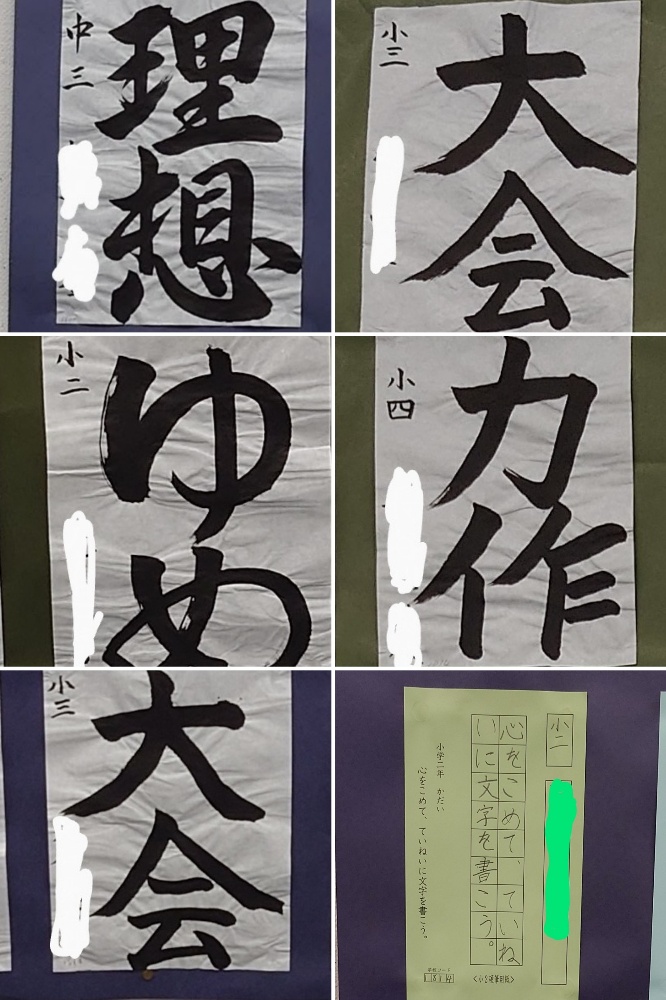 中三
理想
小三
大会
小二
ゆめ
小四
力作
小三
大会
小二
心をこめて、ていね
いに文字を書こう。
小学二年 かだい
心をこめて、ていねいに文字を書こう。